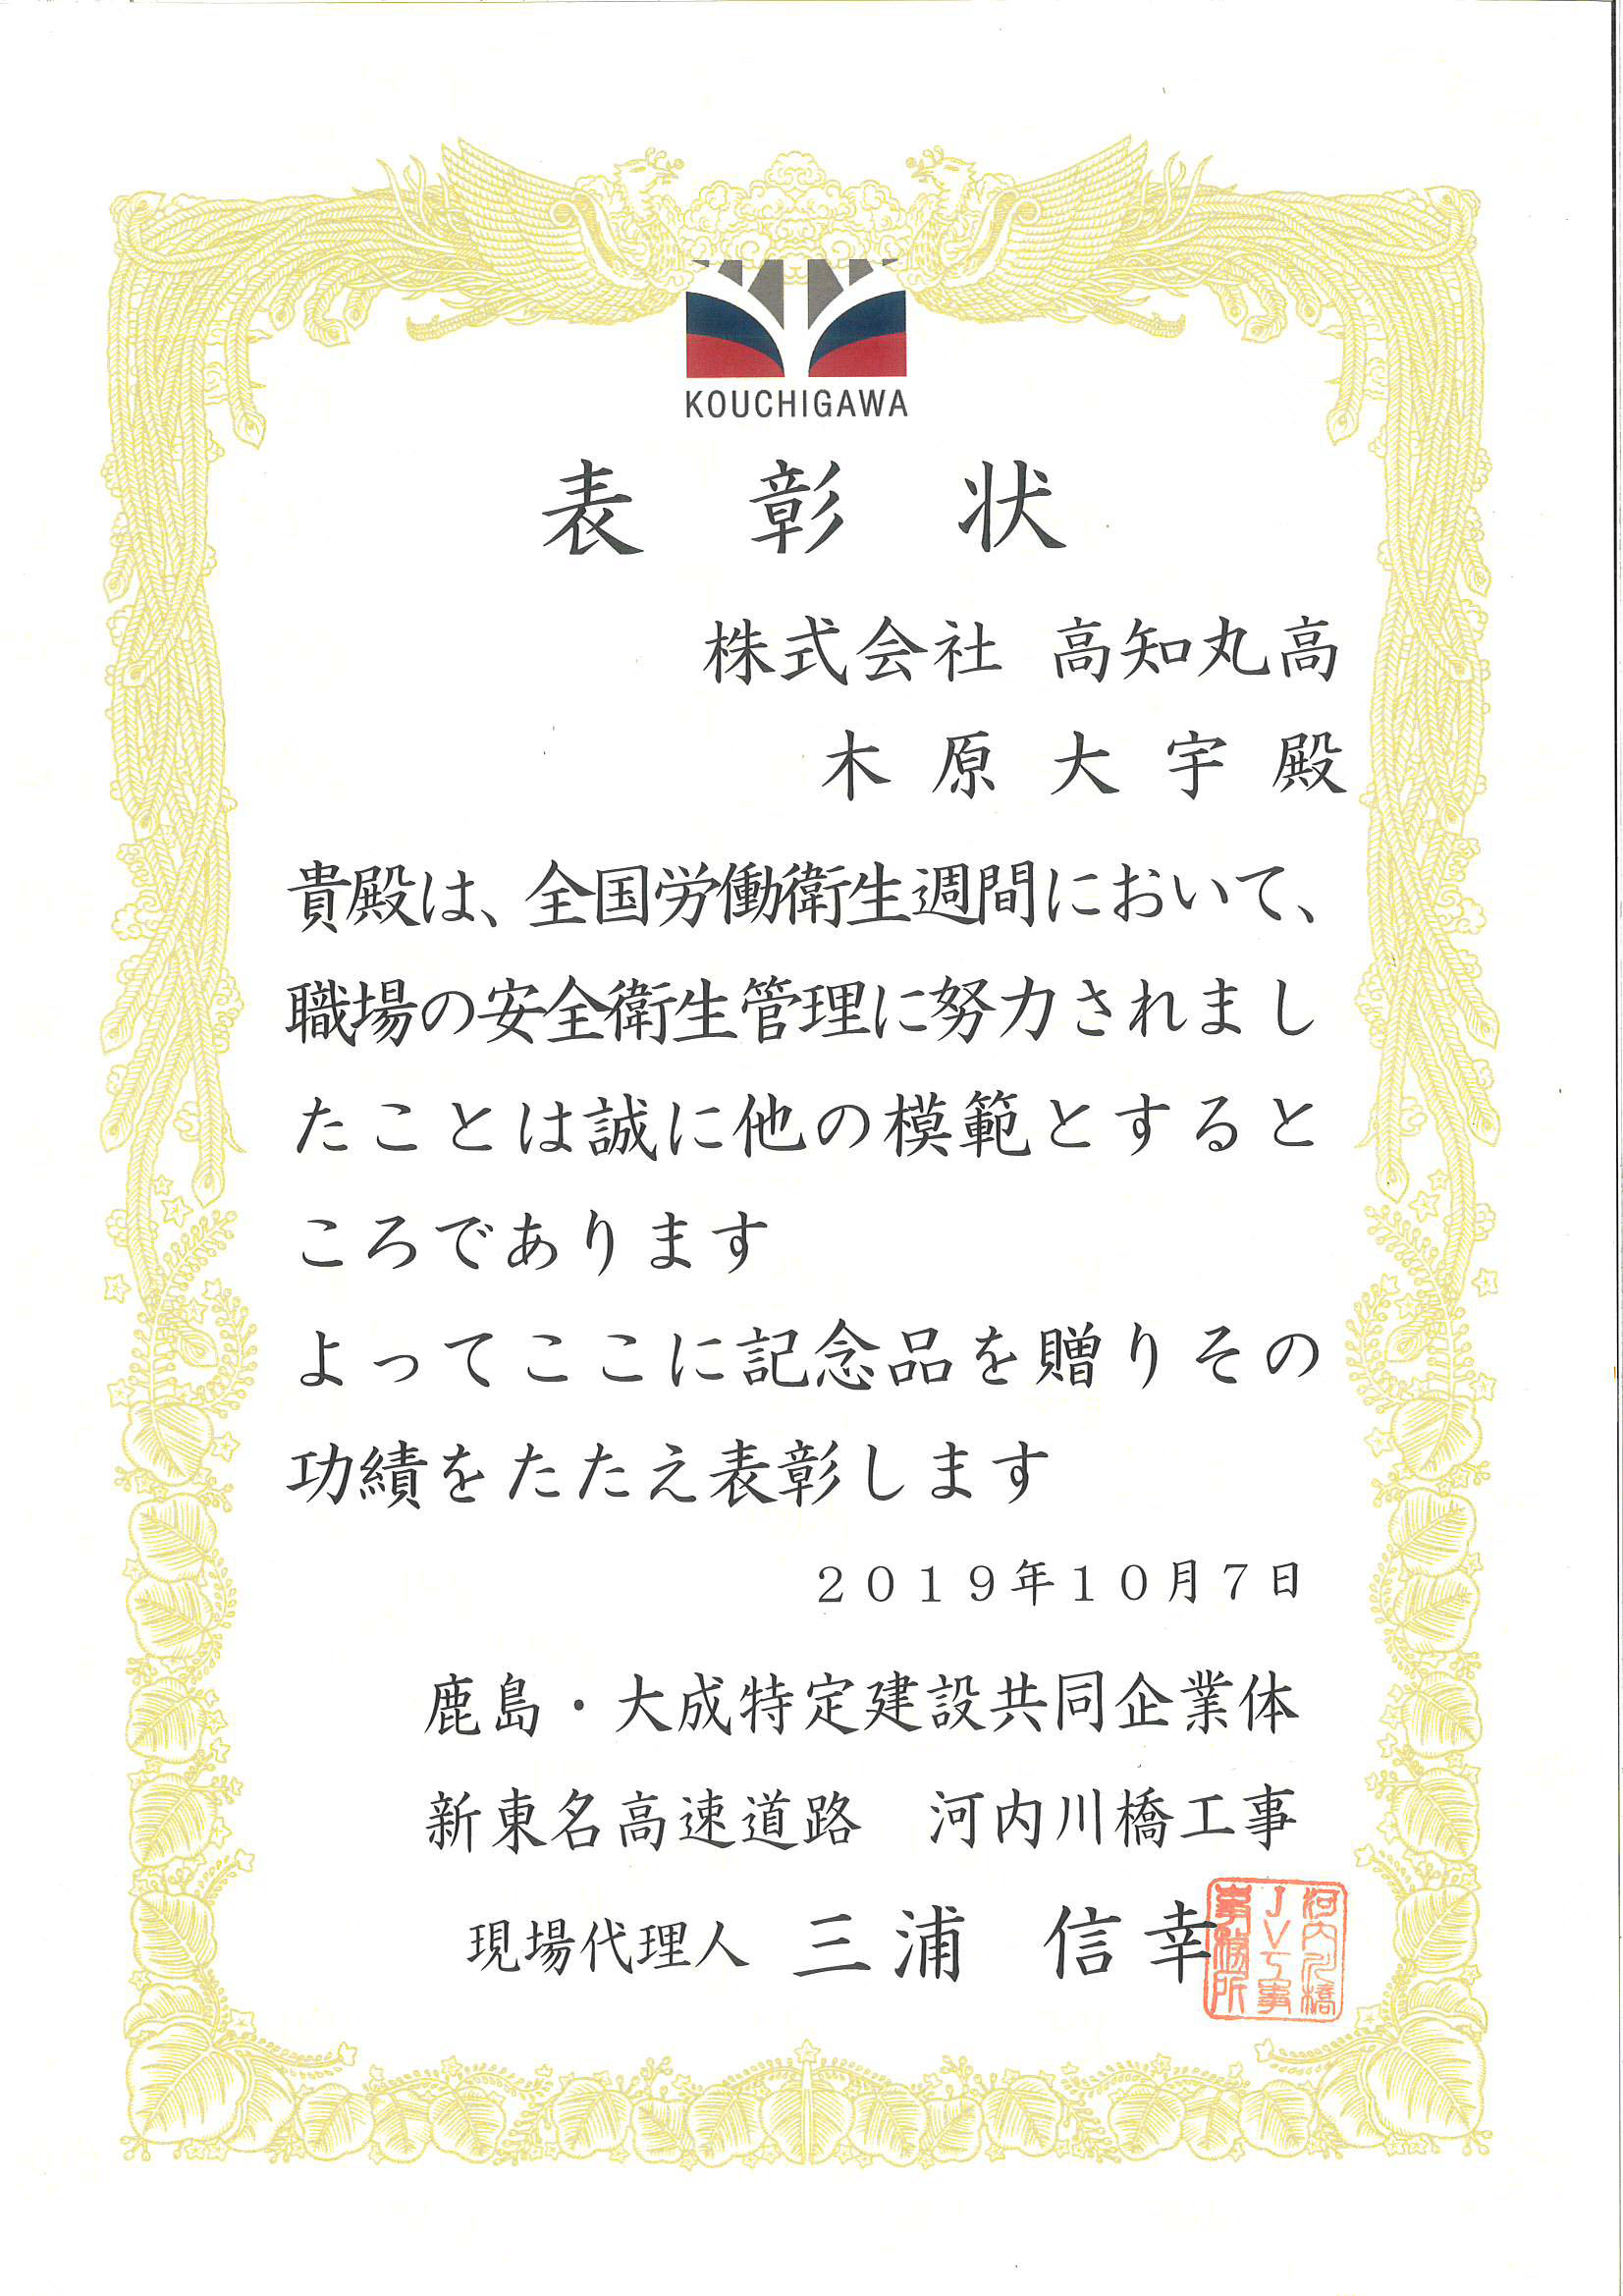 KOUCHIGAWA
表彰状
株式会社 高知丸高
木原大宇殿
貴殿は、全国労働衛生週間において、
職場の安全衛生管理に努力されまし
たことは誠に他の模範とすると
ころであります
よってここに記念品を贈りその
功績をたたえ表彰します
2019年10月7日
鹿島・大成特定建設共同企業体
新東名高速道路 河内川橋工事
現場代理人 三浦 信幸
河内川橋
JV工事
事務所